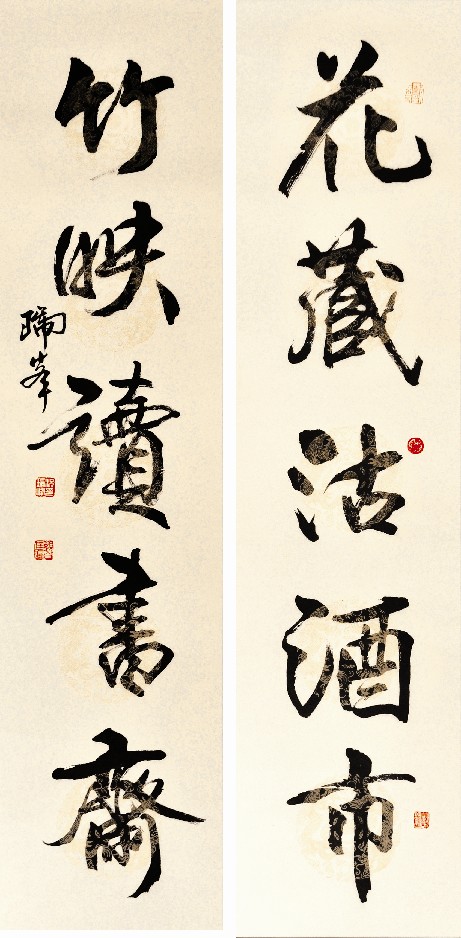 花藏沽酒市
竹映讀書齋
瑞峯